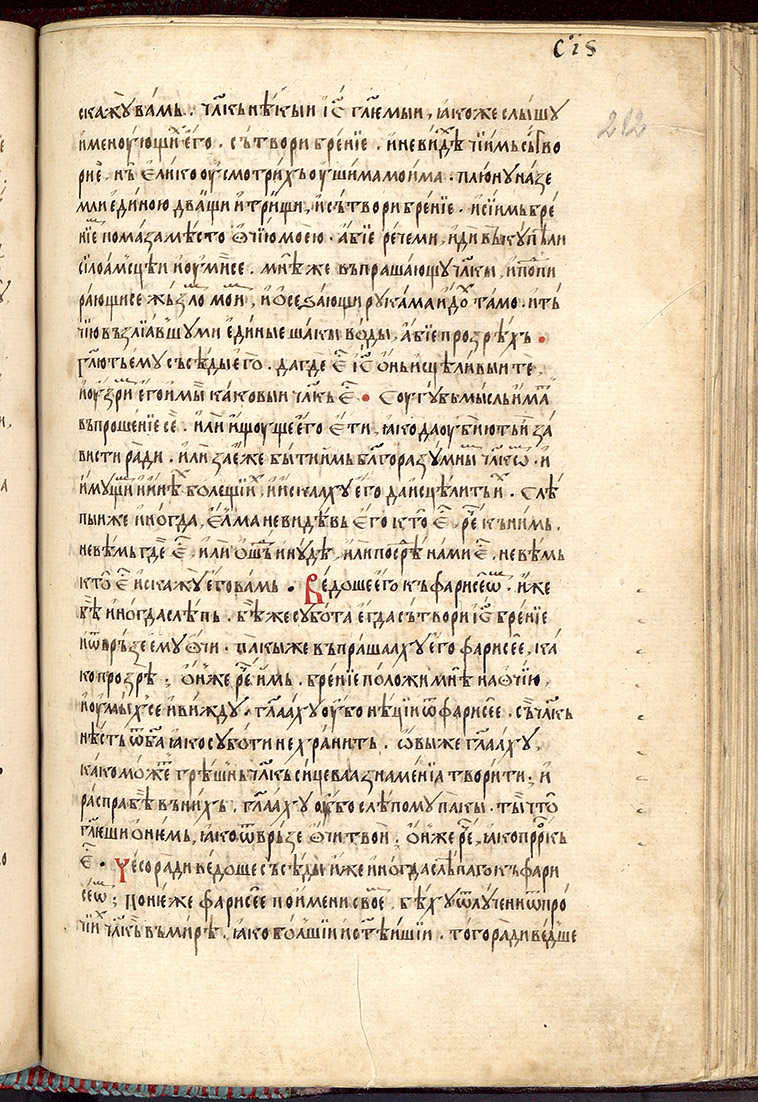 с҃і̑ѕ
212
скажꙋ вамь. чл҃кь нѣкыи і҆с҃ гл҃емыи, ꙗ҆коже слышꙋ
именоу́ющи́х его̀. сътвори бре́нїе. и҆ не ви́дѣ чїимь сътво
рие̑, нъ е҆ли́ко оу҆смотри́хъ оу҆ши́ма мои́ма. плю́нꙋ на зе
мли е҆ди́ною два́щи и҆ три́щи, и҆ сътвори бре́нїе. и҆ сїи́мь бре́
нїемь пома́за мѣ́сто ѻ҆чїю мое́ю. а҆́бїе рече ми, и҆ди въ кꙋпѣ́ли
сїлоа́мсцѣи и҆ оу҆ми́ се. мнѣ́ же въпраша́ющꙋ чл҃кы, и҆ попи
ра́ющи се
рꙋкама и҆до́х та́мо. и҆ ѻ҆
чїю въз꙼лїа́вшꙋ ми е҆ди́ные ша́кы во́ды, а҆́бїе прозрѣ́хъ.
гл҃ють е҆мꙋ съсѣ́ды е҆го̀. да гдѐ е҆с҃ і҆с҃ ѻ҆нь и҆сцѣли́выи те,
и҆ оу҆зри́мь его̀ и҆ мы̀ ка́ковыи чл҃кь е҆с҃. Соугꙋ́бь мы́сль и҆́мат
въпроше́нїе се̏. и҆лѝ и҆щꙋще е҆го̀ е҆́ти. ꙗ҆ко да оу҆бїю́ть и҆̀ за́
висти ра́ди. и҆лѝ за е҆́же бы́ти имь бл҃горазꙋ́мным чл҃кѡм. и҆
и҆мꙋ́щим и҆ и҆нѣ́х болещїи́х, и҆ и҆ска́ахꙋ е҆го̀ да и҆сцѣли́ть и҆х. Слѣ
пыи же и҆ногда, е҆лма не ви́дѣвь е҆го̀ кто̀ е҆с҃, ре҃ к ни́мь.
не вѣ́мь гдѐ е҆с҃, и҆лѝ ѻ҆ше́ль и҆нꙋдѣ, и҆лѝ посрѣ́д на́ми е҆с҃, не вѣ́мь
кто̀ е҆с҃ и҆ скажꙋ̀ е҆го̀ вамь. Ведо́ше е҆го̀ къ фарисе́ѡмь. и҆́же
бѣ̀ и҆ногда слѣ́пь. бѣ́ же сꙋбо́та е҆гда сътвори і҆с҃ бре́нїе
и҆ ѿвръ́зе е҆мꙋ ѻ҆́чи. па́кы же въпраша́ахꙋ е҆го̀ фарисе́е, ка́
ко прозрѣ̀; ѻ҆́н же ре҃ и҆мь. бре́нїе положи мнѣ̀ на ѻ҆чїю,
и҆ оу҆мы́х се и҆ ви́ждꙋ. гл҃аахꙋ оу҆́бо нѣ́цїи ѿ фарисе́е. съ чл҃кь
нѣ́сть ѿ б҃а ꙗ҆ко сꙋбо́ти не храни́ть. ѡ҆вы́ же гл҃аахꙋ,
ка́ко мо́жет грѣ́шнь чл҃кь сицеваа зна́менїа твори́ти; и҆
распра бѣ̀ въ ни́хь. гл҃аахꙋ оу҆́бо слѣпомꙋ па́кы. ты̀ что̀
гл҃еши ѻ҆ не́мь, ꙗ҆ко ѿвръ́зе ѻ҆́чи твои̏. ѻ҆́н же ре҃, ꙗ҆ко прⷪ҇ркь
е҆с҃. Чесо ра́ди ведо́ше съсѣ́ды и҆́же и҆ногда слѣ́паго къ фари
се́ѡмь; поне́же фарисе́е по и҆́мени свое́м, бѣ́хꙋ ѿлꙋ́чени ѿ про́
чїи́х чл҃кь въ ми́рѣ, ꙗ҆ко бо́лшїи и҆ ст҃ѣи́шїи. того̀ ра́ди ведо́ше